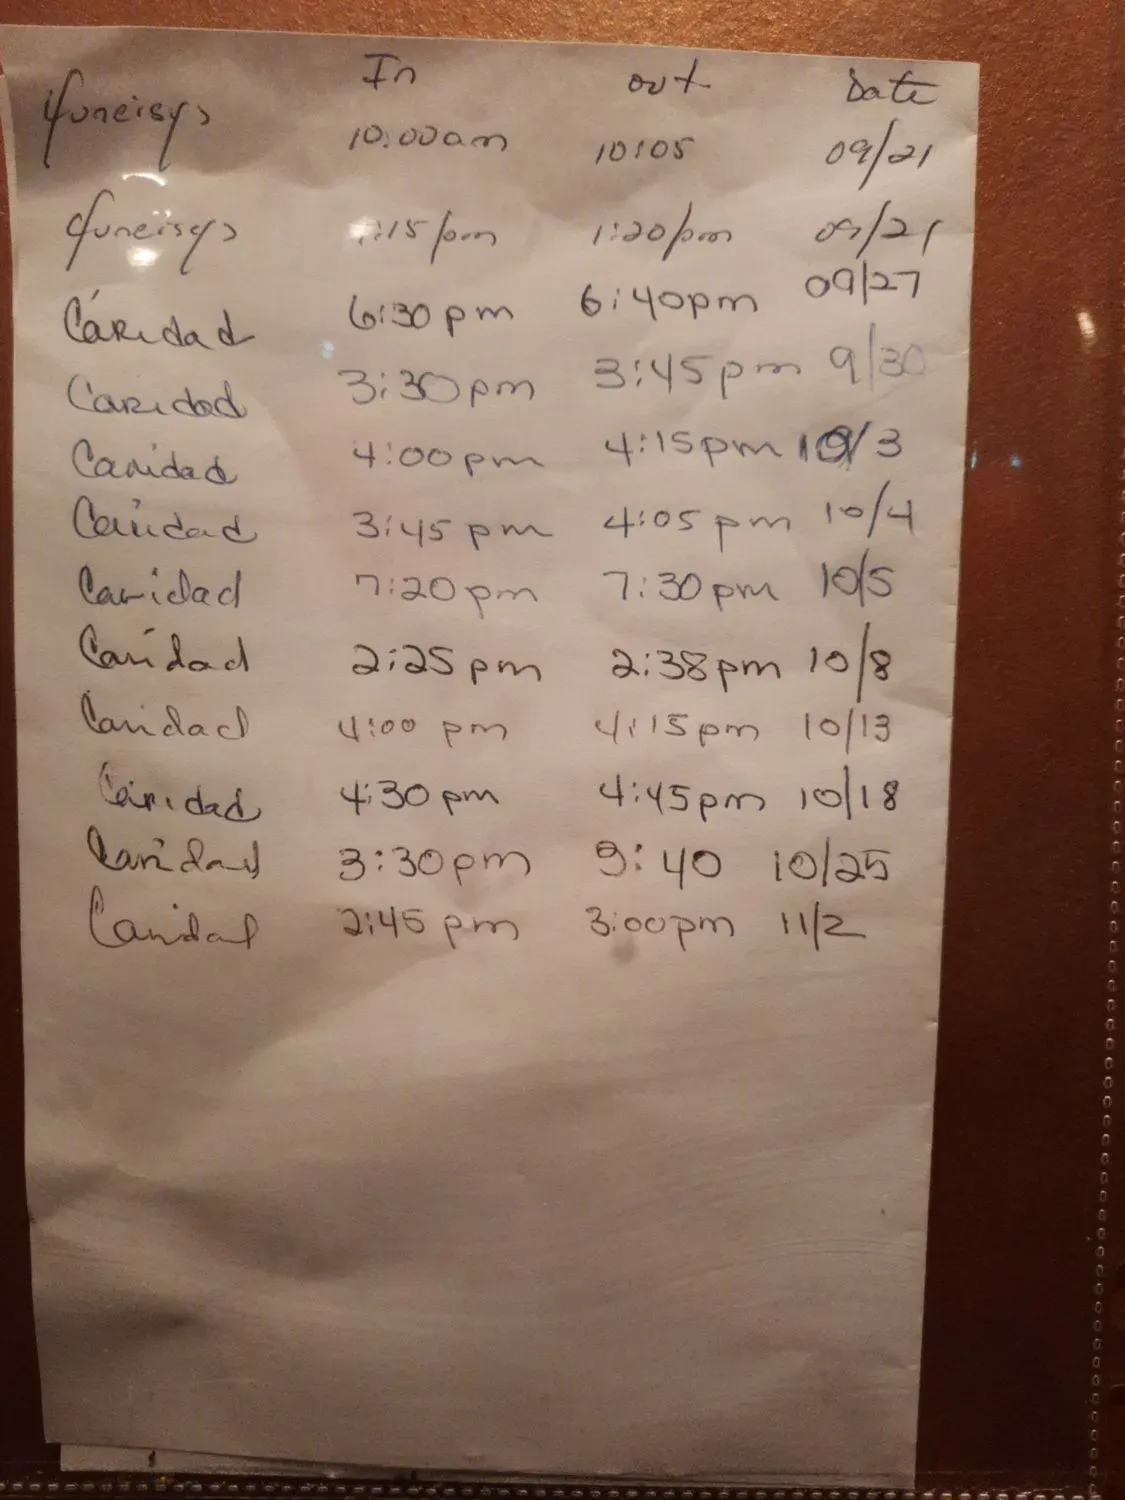 In out Date
Yuneisys 10:00am 10:05 09/21
Yuneisys 1:15pm 1:20pm 09/21
Caridad 6:30pm 6:40pm 09/27
Caridad 3:30pm 3:45pm 9/30
Caridad 4:00pm 4:15pm 10/3
Caridad 3:45pm 4:05pm 10/4
Caridad 7:20pm 7:30pm 10/5
Caridad 2:25pm 2:38pm 10/8
Caridad 4:00 pm 4:15pm 10/13
Caridad 4:30pm 4:45pm 10/18
Caridad 3:30pm 9:40 10/25
Caridad 2:45pm 3:00pm 11/2